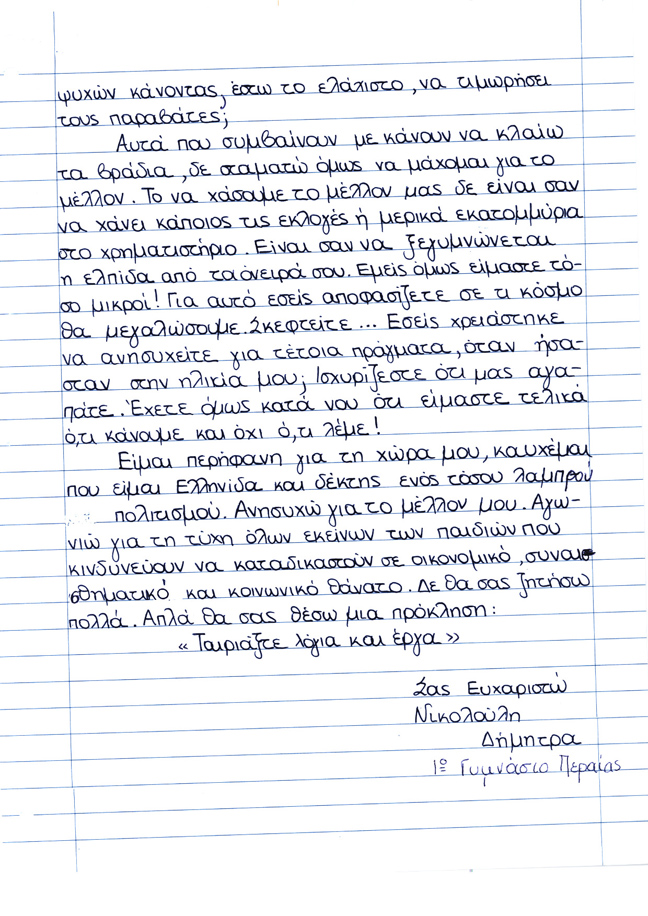 ψυχών κάνοντας, έστω το ελάχιστο, να τιμωρήσει
τους παραβάτες;
Αυτά που συμβαίνουν με κάνουν να κλαίω
τα βράδια, δε σταματώ όμως να μάχομαι για το
μέλλον. Το να χάσουμε το μέλλον μας δε είναι σαν
να χάνει κάποιος τις εκλογές ή μερικά εκατομμύρια
στο χρηματιστήριο. Είναι σαν να ξεγυμνώνεται
η ελπίδα από τα όνειρά σου. Εμείς όμως είμαστε τό-
σο μικροί! Για αυτό εσείς αποφασίζετε σε τι κόσμο
θα μεγαλώσουμε. Σκεφτείτε... Εσείς χρειάστηκε
να ανησυχείτε για τέτοια πράγματα, όταν ήσα-
σταν στην ηλικία μου; Ισχυρίζεστε ότι μας αγα-
πάτε. Έχετε όμως κατά νου ότι είμαστε τελικά
ό,τι κάνουμε και όχι ό,τι λέμε!
Είμαι περήφανη για τη χώρα μου, καυχέμαι
που είμαι Ελληνίδα και δέκτης ενός τόσου λαμπρού
πολιτισμού. Ανησυχώ για το μέλλον μου. Αγω-
νιώ για τη τύχη όλων εκείνων των παιδιών που
κινδυνεύουν να καταδικαστούν σε οικονομικό, συναι
σθηματικό και κοινωνικό θάνατο. Δε θα σας ζητήσω
πολλά. Απλά θα σας θέσω μια πρόκληση:
«Ταιριάξτε λόγια και έργα»
Σας Ευχαριστώ
Νικολούλη
Δήμητρα
1ο Γυμνάσιο Περαίας